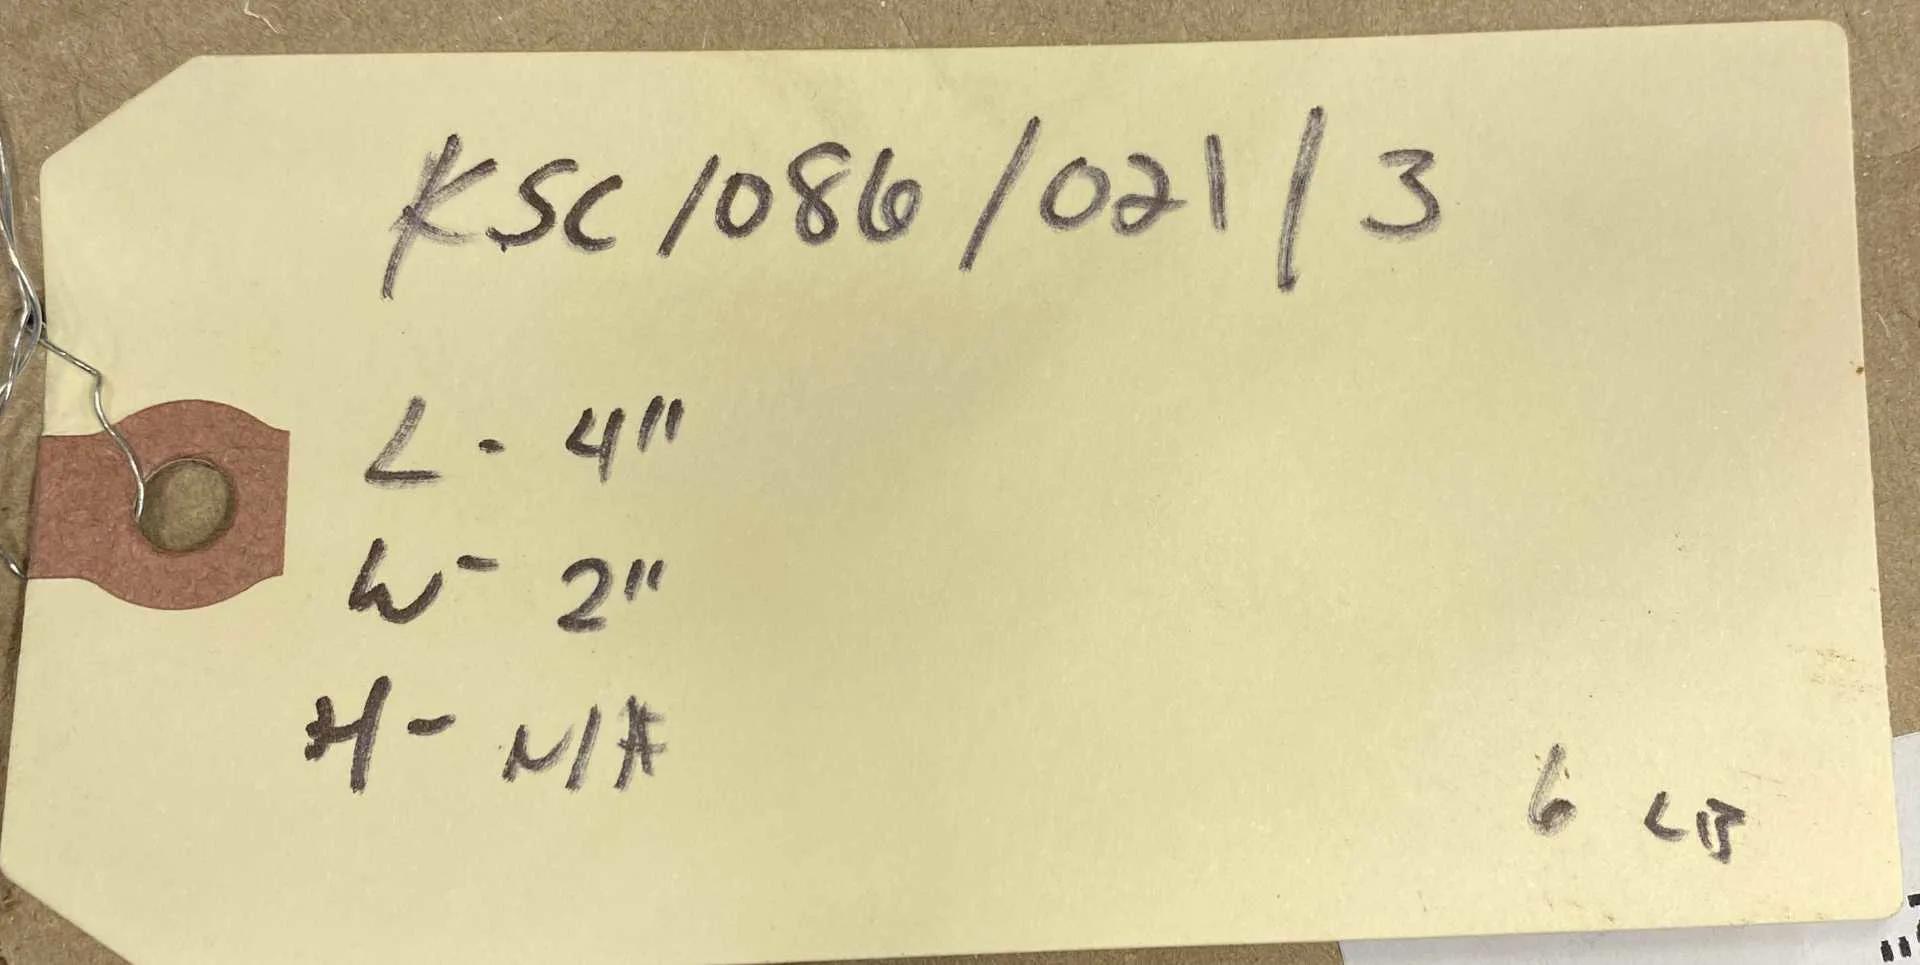 KSC/086/021/3
L - 4"
W - 2"
H - N/A
6 LB